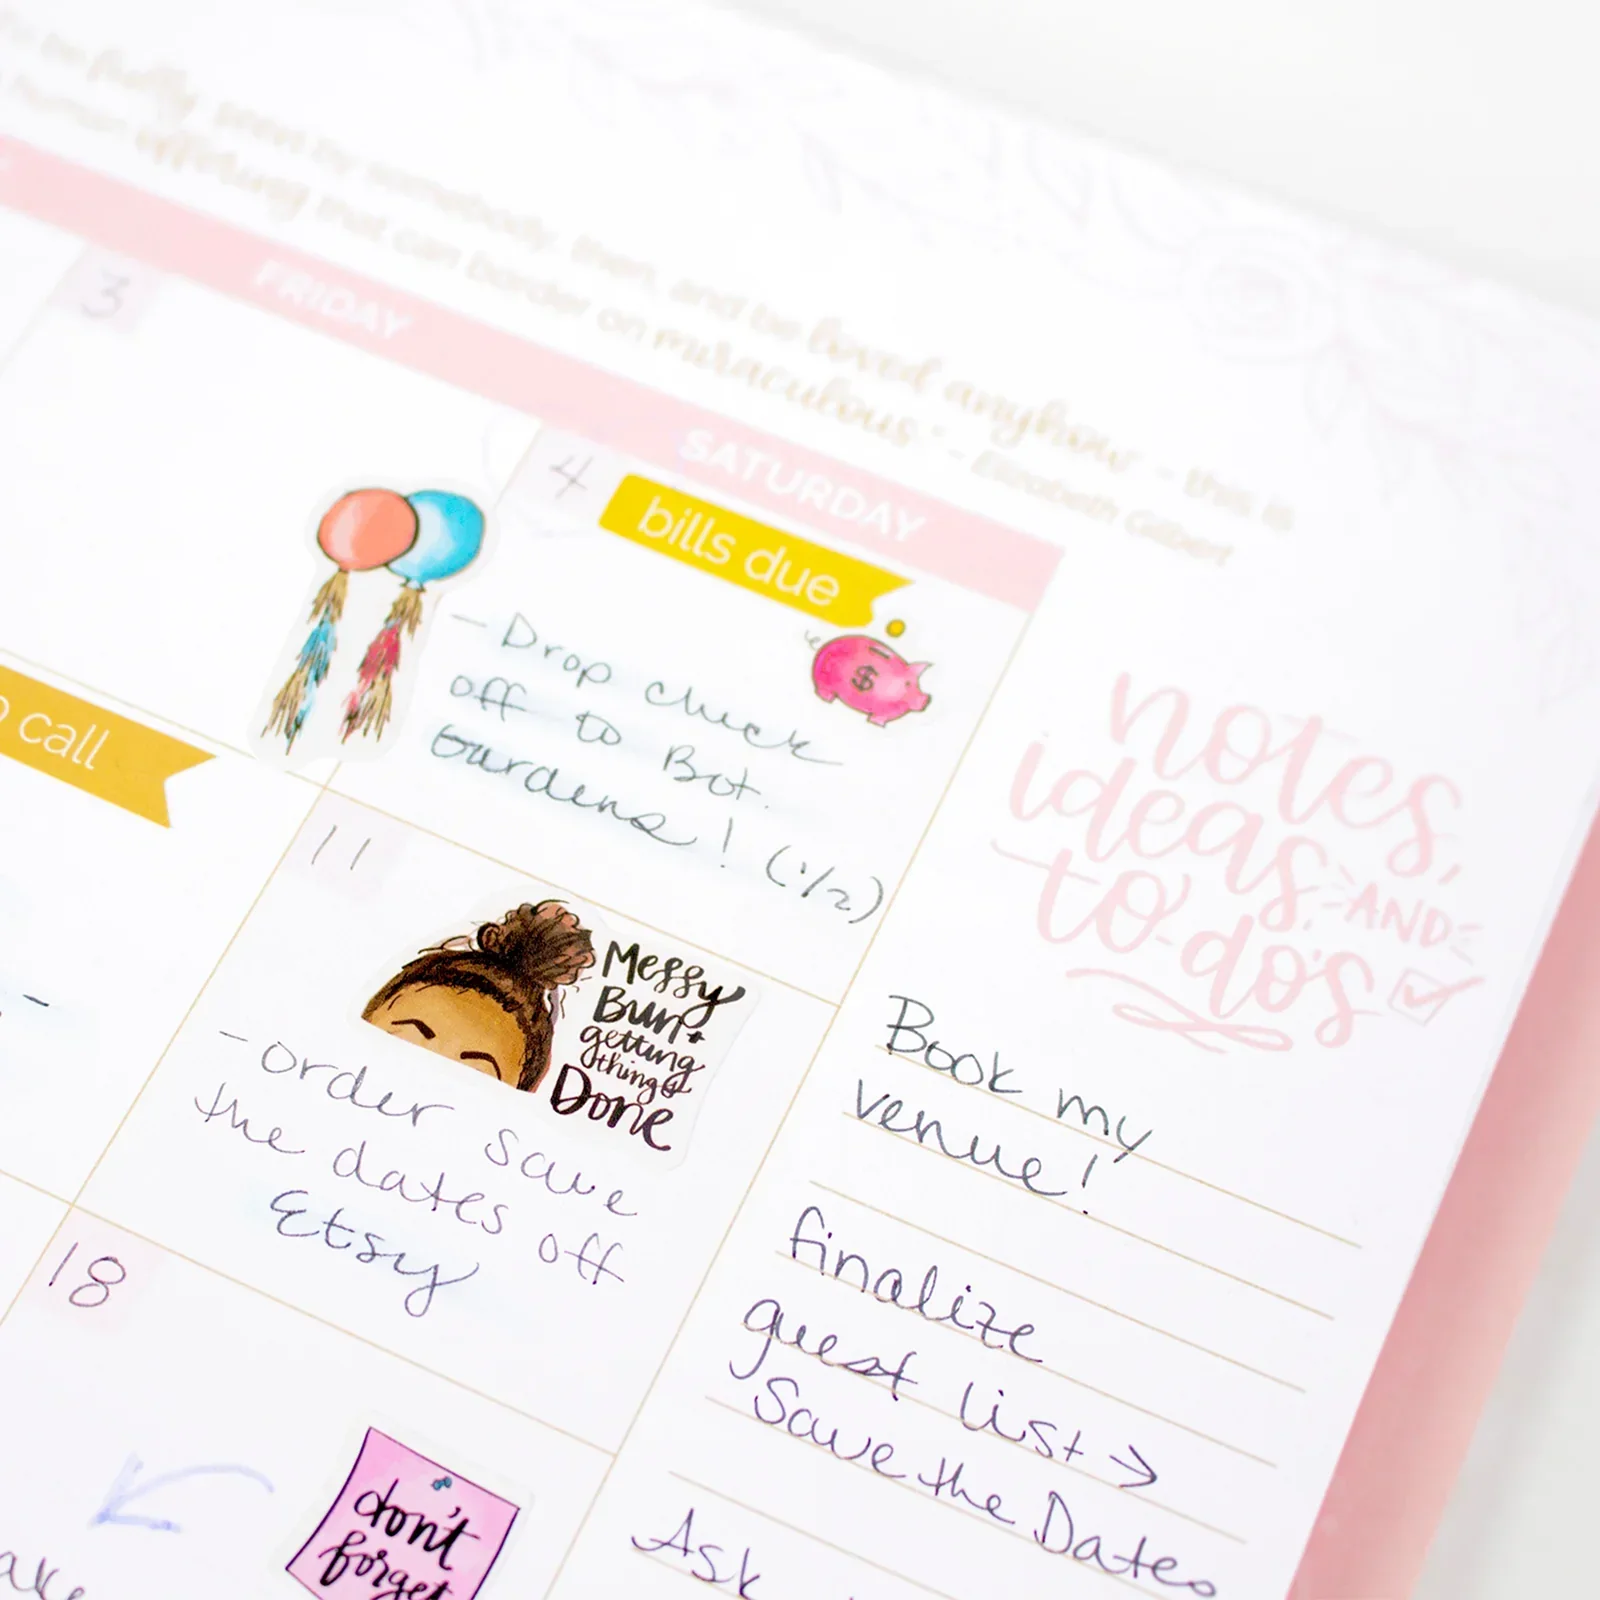 fully seen by somebody, then, and be loved anyhow - this is
offering that can border on miraculous." - Elizabeth Gilbert
FRIDAY
SATURDAY
3
4
bills due
$
- Drop check
off to Bot.
Gardens! (1/2)
call
11
Messy
Bun +
getting
things
Done
- order save
the dates off
Etsy
18
don't
forget
notes,
ideas,
AND
to-do's
Book my
venue!
finalize
guest list →
Save the Dates
Ask